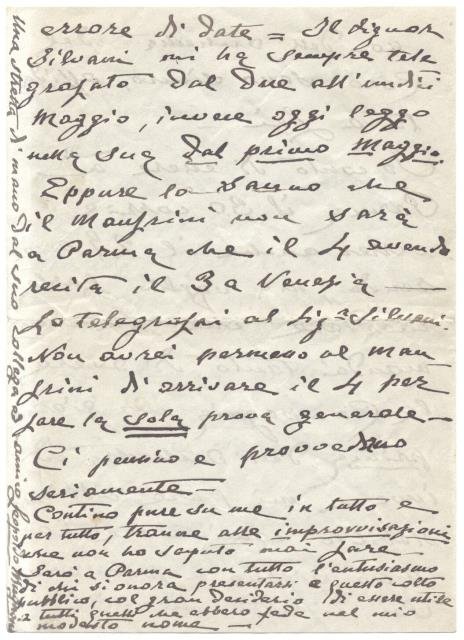 errore di date = Il Signor
Silvani mi ha sempre tele
grafato dal due all'undici
Maggio, invece oggi leggo
nella sua dal primo Maggio.
Eppure lo sanno che
il Manfrini non sarà
a Parma che il 4 avendo
recita il 3 a Venezia —
Lo telegrafai al Sigʳ Silvani.
Non avrei permesso al Man
frini di arrivare il 4 per
fare la sola prova generale —
Ci pensino e provvedano
seriamente —
Contino pure su me in tutto e
per tutto, tranne alle improvvisazioni
che non ho saputo mai fare
Sarò a Parma con tutto l'entusiasmo
di chi si onora presentarsi a questo colto
pubblico, col gran desiderio di essere utile
a tutti quelli che ebbero fede nel mio
modesto nome —
Una stretta di mano dal suo collega ed amico